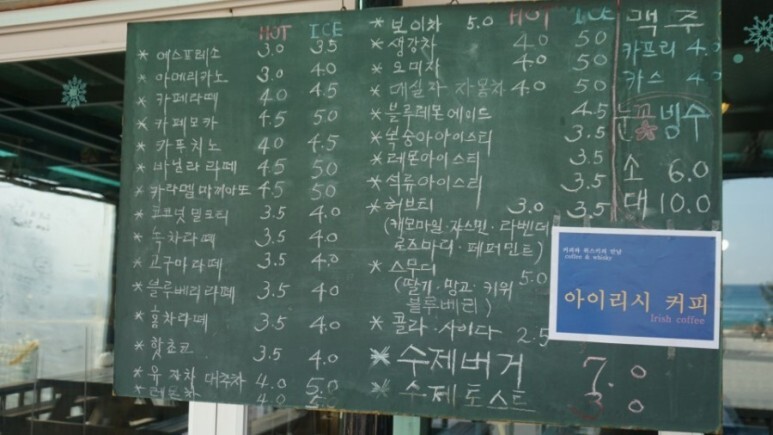 HOT ICE
* 에스프레소 3.0 3.5
* 아메리카노 3.0 4.0
* 카페라떼 4.0 4.5
* 카페모카 4.5 5.0
* 카푸치노 4.0 4.5
* 바닐라라떼 4.5 5.0
* 카라멜마끼아또 4.5 5.0
* 코코넛 밀크티 3.5 4.0
* 녹차라떼 3.5 4.0
* 고구마라떼 3.5 4.0
* 블루베리라떼 3.5 4.0
* 홍차라떼 3.5 4.0
* 핫초코 3.5 4.0
* 유자차 대추차 4.0 5.0
* 레몬차 4.0 5.0
HOT ICE
* 보이차 5.0
* 생강차 4.0 5.0
* 오미자 4.0 5.0
* 매실차 자몽차 4.0 5.0
* 블루레몬에이드 4.5
* 복숭아아이스티 3.5
* 레몬아이스티 3.5
* 석류아이스티 3.5
* 허브티 3.0 3.5
(캐모마일·자스민·라벤더
로즈마리·페퍼민트)
* 스무디 5.0
(딸기·망고·키위
블루베리)
* 콜라·사이다 2.5
* 수제버거 7.0
* 수제토스트 3.0
맥주
카프리 4.0
카스 4.0
눈꽃빙수
소 6.0
대 10.0
커피와 위스키의 만남
coffee & whisky
아이리시 커피
Irish coffee